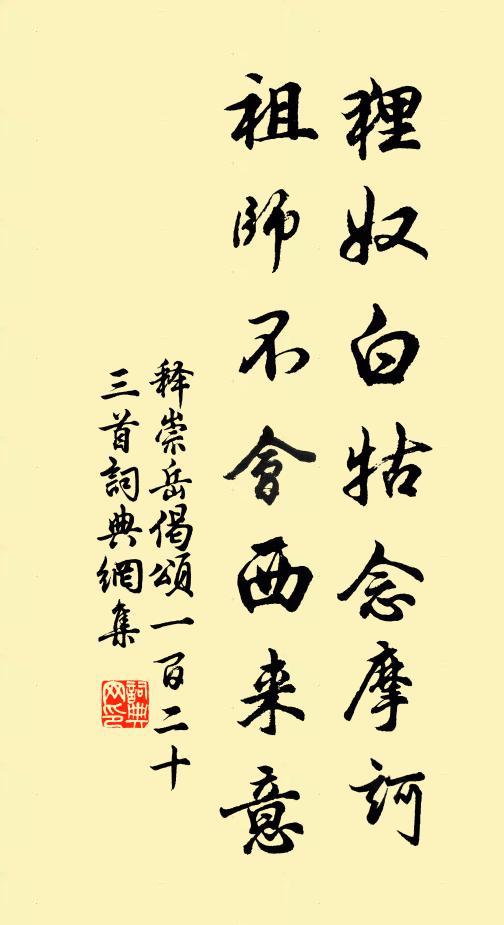 狸奴白牯念摩訶
祖師不會西来意
释崇岳偈頌一百二十
三首詞典網集
詞典网印